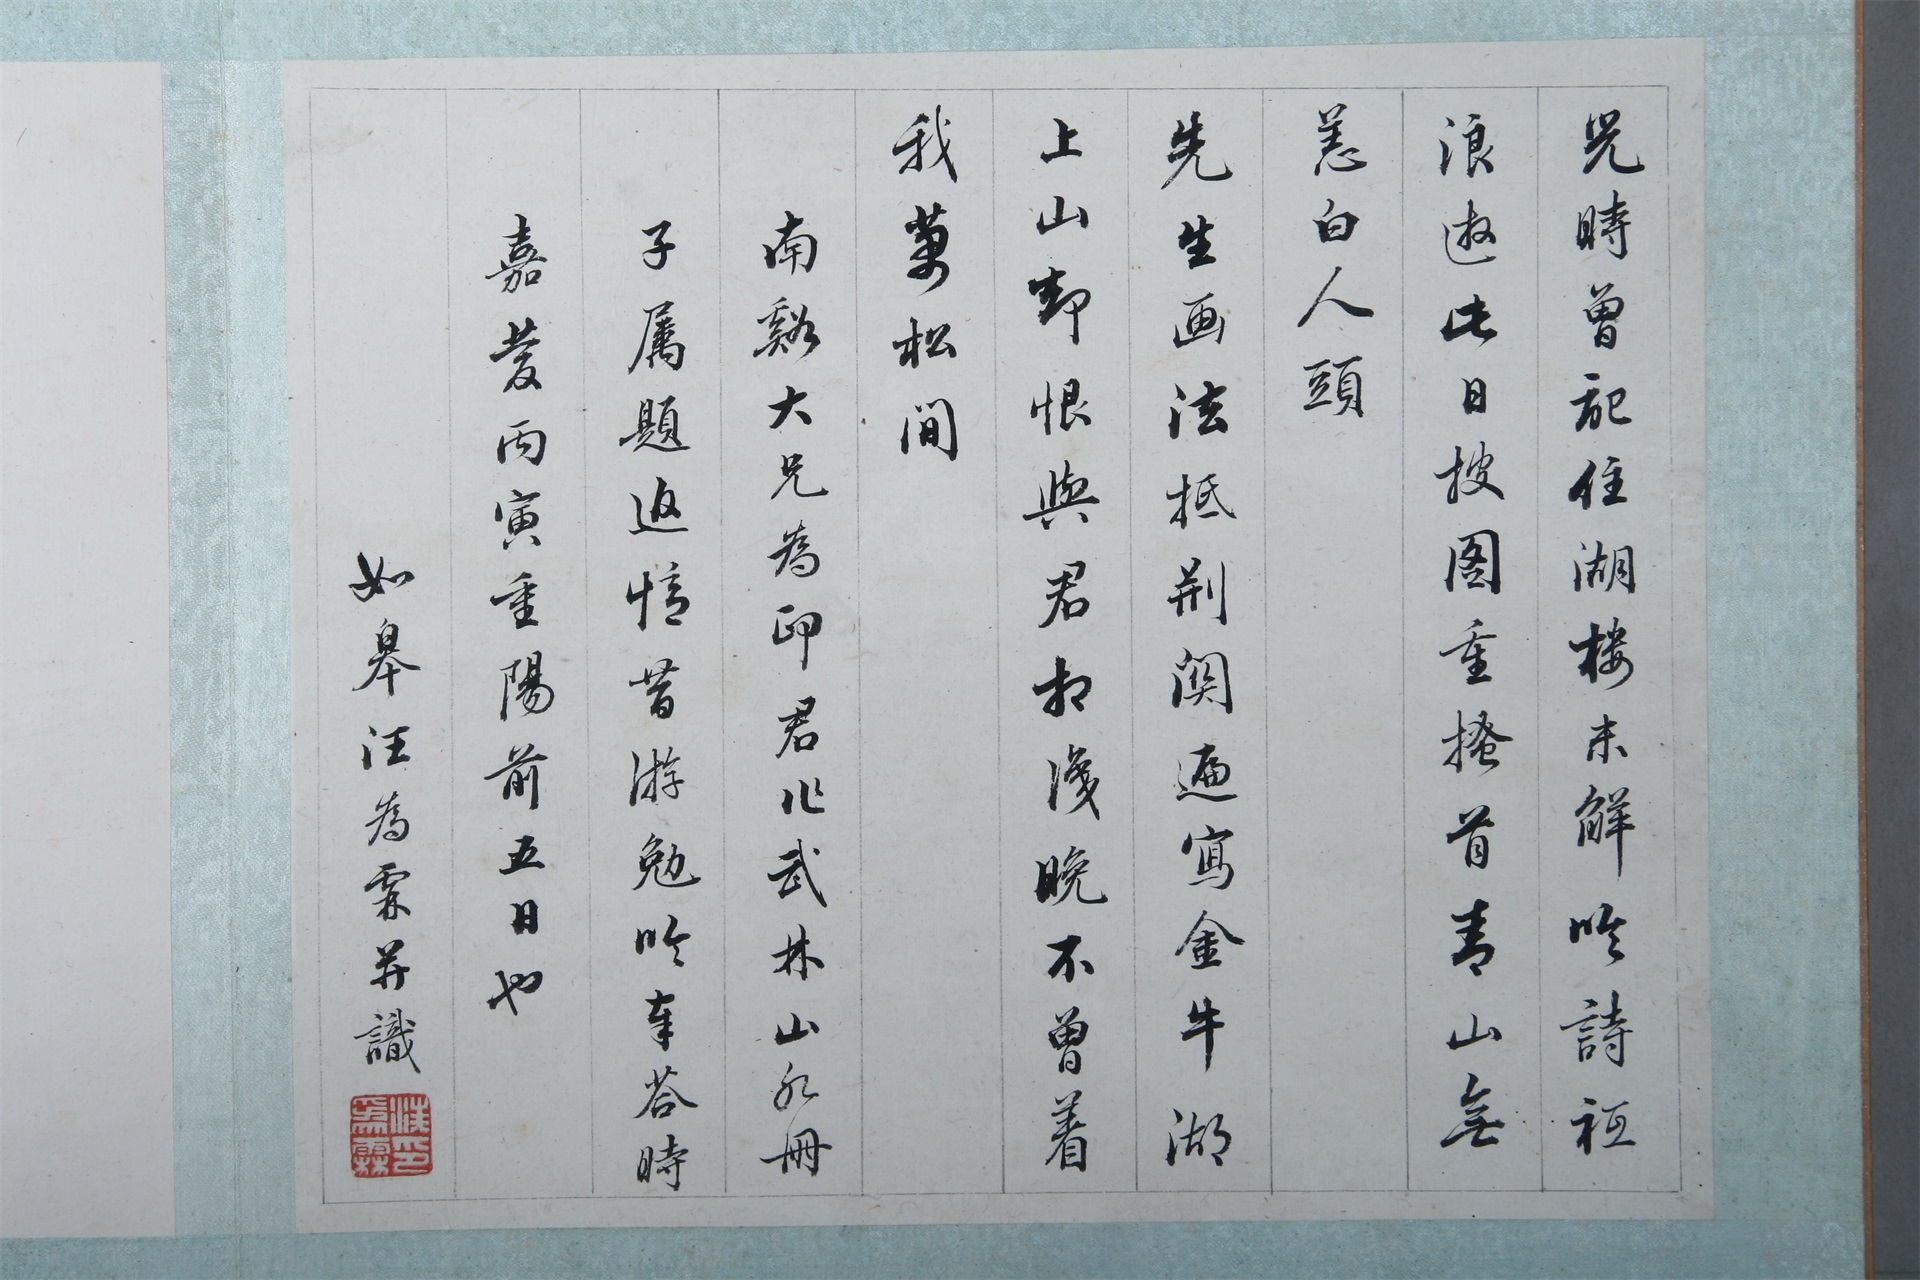 兒時曾記住湖楼未解吟詩祗
浪遊此日披图重搔首青山無
恙白人頭
先生画法抵荆関遍寫金牛湖
上山却恨與君相識晚不曽着
我萬松间
南谿大兄為印君作武林山水冊
子属題追憶昔游勉吟奉荅時
嘉慶丙寅重陽前五日也
如皋汪為霖并識
汪為霖印